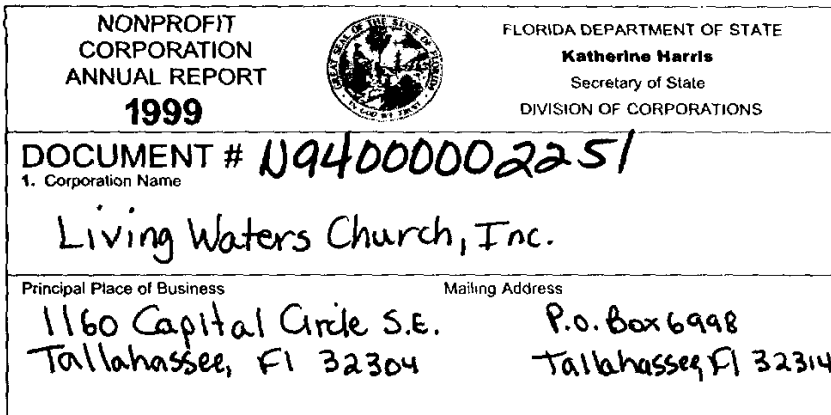 NONPROFIT
CORPORATION
ANNUAL REPORT
1999
GREAT SEAL OF THE STATE OF FLORIDA
IN GOD WE TRUST
FLORIDA DEPARTMENT OF STATE
Katherine Harris
Secretary of State
DIVISION OF CORPORATIONS
DOCUMENT # N94000002251
1. Corporation Name
Living Waters Church, Inc.
Principal Place of Business
1160 Capital Circle S.E.
Tallahassee, Fl 32304
Mailing Address
P.O. Box 6998
Tallahassee, Fl 32314